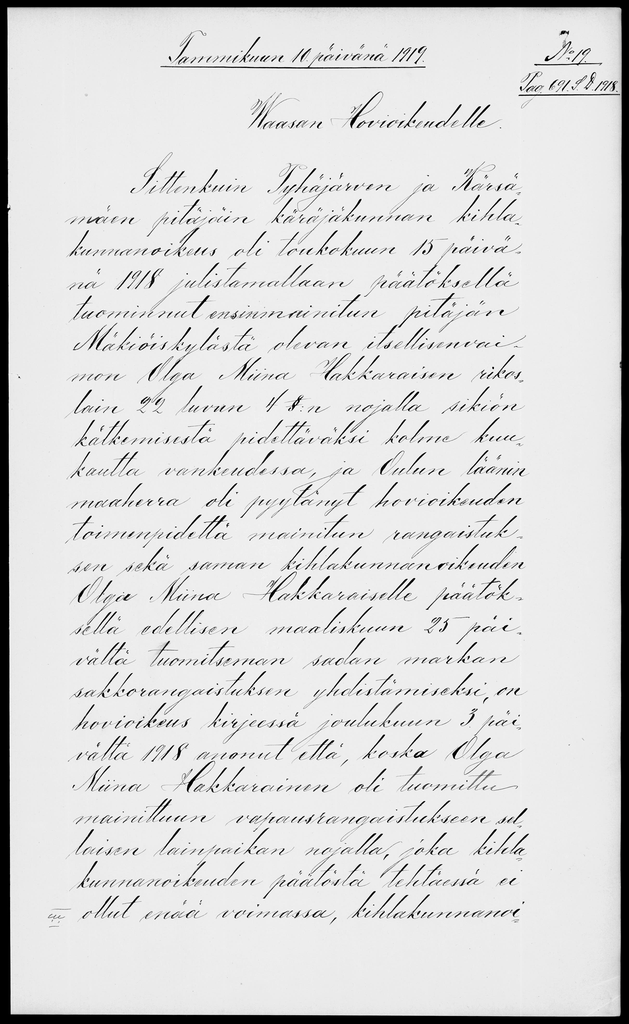 Tammikuun 10 päivänä 1919.
No 19.
Pag. 691. S. D. 1918.
Waasan Hovioikeudelle.
Sittenkuin Pyhäjärven ja Kärsä-
mäen pitäjäin käräjäkunnan kihla-
kunnanoikeus oli toukokuun 15 päivä-
nä 1918 julistamallaan päätöksellä
tuominnut ensinmainitun pitäjän
Mäkiöiskylästä olevan itsellisenvai-
mon Olga Miina Hakkaraisen rikos-
lain 22 luvun 4 §:n nojalla sikiön
kätkemisestä pidettäväksi kolme kuu-
kautta vankeudessa, ja Oulun läänin
maaherra oli pyytänyt hovioikeuden
toimenpidettä mainitun rangaistuk-
sen sekä saman kihlakunnanoikeuden
Olga Miina Hakkaraiselle päätök-
sellä edellisen maaliskuun 25 päi-
vältä tuomitseman sadan markan
sakkorangaistuksen yhdistämiseksi, on
hovioikeus kirjeessä joulukuun 3 päi-
vältä 1918 anonut että, koska Olga
Miina Hakkarainen oli tuomittu
mainittuun vapausrangaistukseen sel-
laisen lainpaikan nojalla, joka kihla-
kunnanoikeuden päätöstä tehtäessä ei
ollut enää voimassa, kihlakunnanoi-